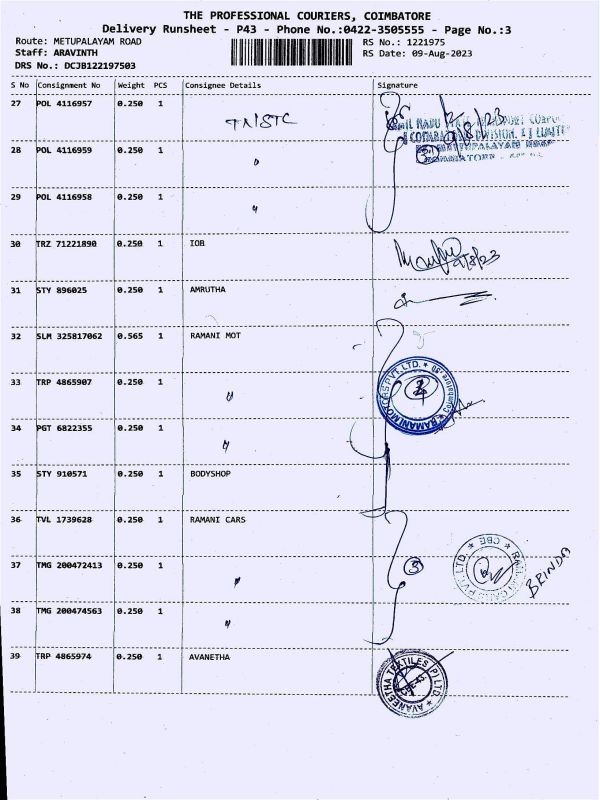 THE PROFESSIONAL COURIERS, COIMBATORE
Delivery Runsheet - P43 - Phone No.:0422-3505555 - Page No.:3
Route: METUPALAYAM ROAD RS No.: 1221975
Staff: ARAVINTH RS Date: 09-Aug-2023
DRS No.: DCJB122197503
S No Consignment No Weight PCS Consignee Details Signature
27 POL 4116957 0.250 1 TNSTC
28 POL 4116959 0.250 1 "
29 POL 4116958 0.250 1 "
30 TRZ 71221890 0.250 1 IOB 9/8/23
31 STY 896025 0.250 1 AMRUTHA
32 SLM 325817062 0.565 1 RAMANI MOT
33 TRP 4865907 0.250 1 " RAMANI MOTORS PVT. LTD.
34 PGT 6822355 0.250 1 "
35 STY 910571 0.250 1 BODYSHOP
36 TVL 1739628 0.250 1 RAMANI CARS
37 TMG 200472413 0.250 1 " 3 BRINDA
38 TMG 200474563 0.250 1 "
39 TRP 4865974 0.250 1 AVANETHA AVANEETHA TEXTILES (P) LTD.